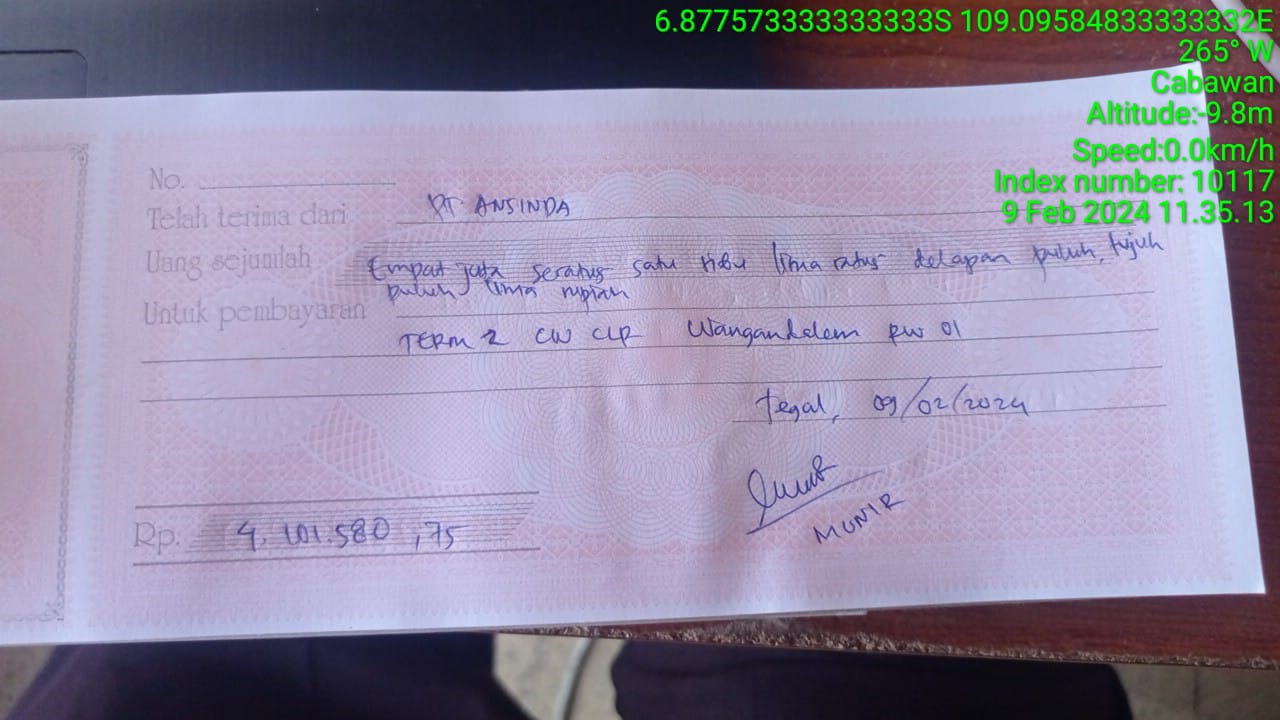 6.877573333333333S 109.09584833333332E
265° W
Cabawan
Altitude:-9.8m
Speed:0.0km/h
Index number: 10117
9 Feb 2024 11.35.13
No.
Telah terima dari PT. ANSINDA
Uang sejumlah Empat juta seratus satu ribu lima ratus delapan puluh, tujuh
puluh lima rupiah
Untuk pembayaran
TERM 2 CW CLR Wangandalem RW 01
Tegal, 09/02/2024
MUNIR
Rp. 4.101.580,75